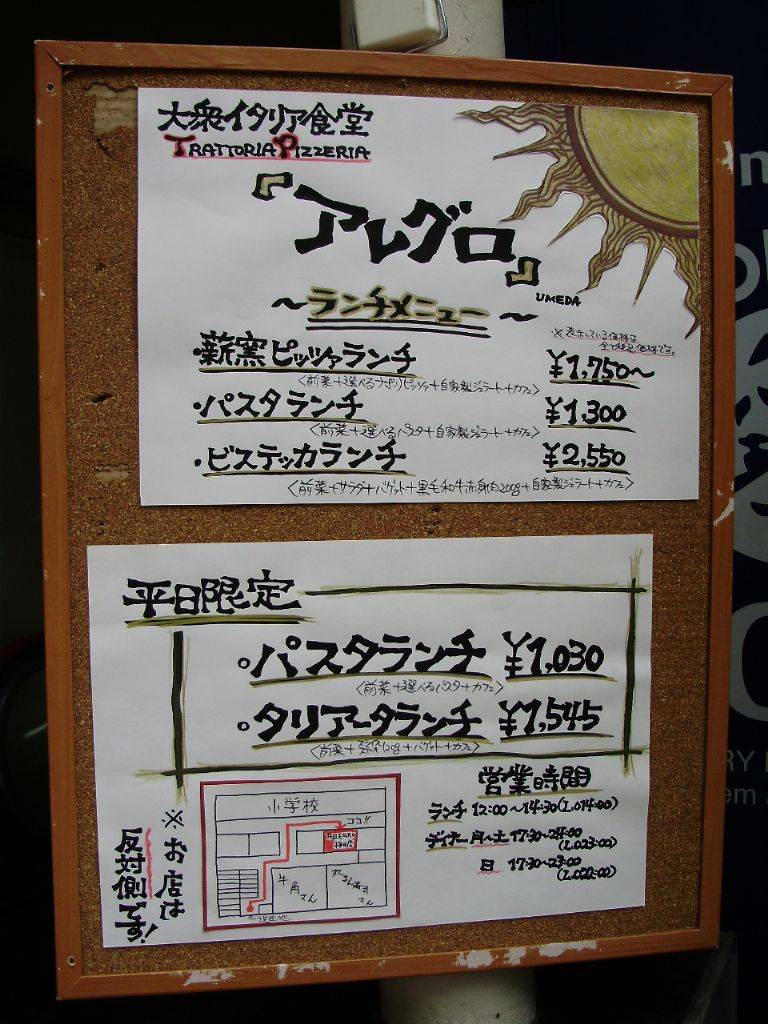 大衆イタリア食堂
TRATTORIA PIZZERIA
『アレグロ』
UMEDA
～ランチメニュー～
※表示している価格は
全て税込価格です。
・薪窯ピッツァランチ ¥1,750～
〈前菜+選べるナポリピッツァ+自家製ジェラート+カフェ〉
・パスタランチ ¥1,300
〈前菜+選べるパスタ+自家製ジェラート+カフェ〉
・ビステッカランチ ¥2,550
〈前菜+サラダ+バゲット+黒毛和牛赤身肉200g+自家製ジェラート+カフェ〉
平日限定
。パスタランチ ¥1,030
〈前菜+選べるパスタ+カフェ〉
。タリアータランチ ¥1,545
120g+バゲット+カフェ〉
営業時間
ランチ 12:00～14:30(L.O14:00)
ディナー 月～土 17:30～24:00
(L.O23:00)
日 17:30～23:00
(L.O22:00)
※お店は
反対側です!
小学校
ココ!!
ALLEGRO
梅田店
牛角さん